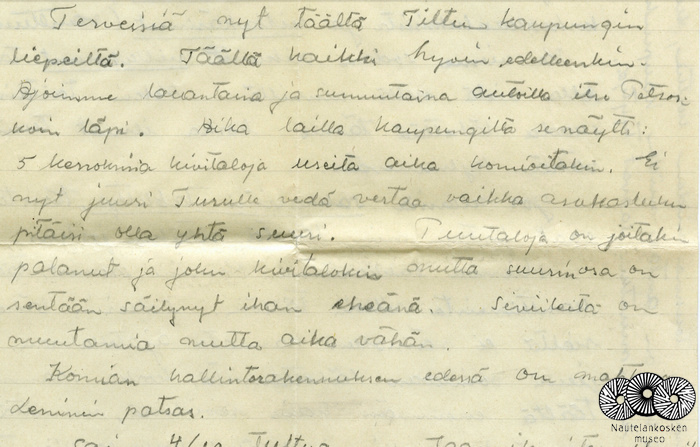 Terveisiä nyt täältä Tittun kaupungin
liepeiltä. Täällä kaikki hyvin edelleenkin.
Ajoimme lauantaina ja sunnuntaina autoilla itse Petros-
koin läpi. Aika lailla kaupungilta se näytti:
5 kerroksisia kivitaloja useita aika komioitakin. Ei
nyt juuri Turulle vedä vertaa vaikka asukasluku
pitäisi olla yhtä suuri. Puutaloja on joitakin
palanut ja joku kivitalokin mutta suurin osa on
sentään säilynyt ihan eheänä. Siviileitä on
muutamia mutta aika vähän.
Komian hallintorakennuksen edessä on
Leninin patsas.
Sain 4/10
Nautelankosken
museo